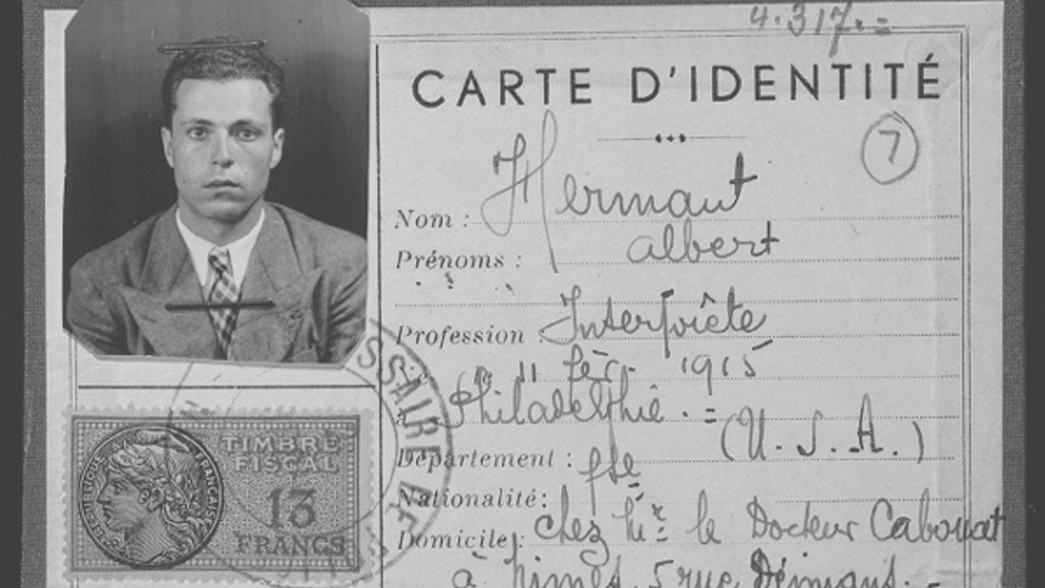 4.317.=
CARTE D'IDENTITÉ
7
Nom : Hermant
Prénoms : albert
Profession : Interprète
11 fév. 1915
à Philadelphie . = (U.S.A.)
Département :
Nationalité : fse
Domicile : chez Mr le Docteur Cabouat
à nimes. 5 rue Démians.
TIMBRE
FISCAL
13
FRANCS